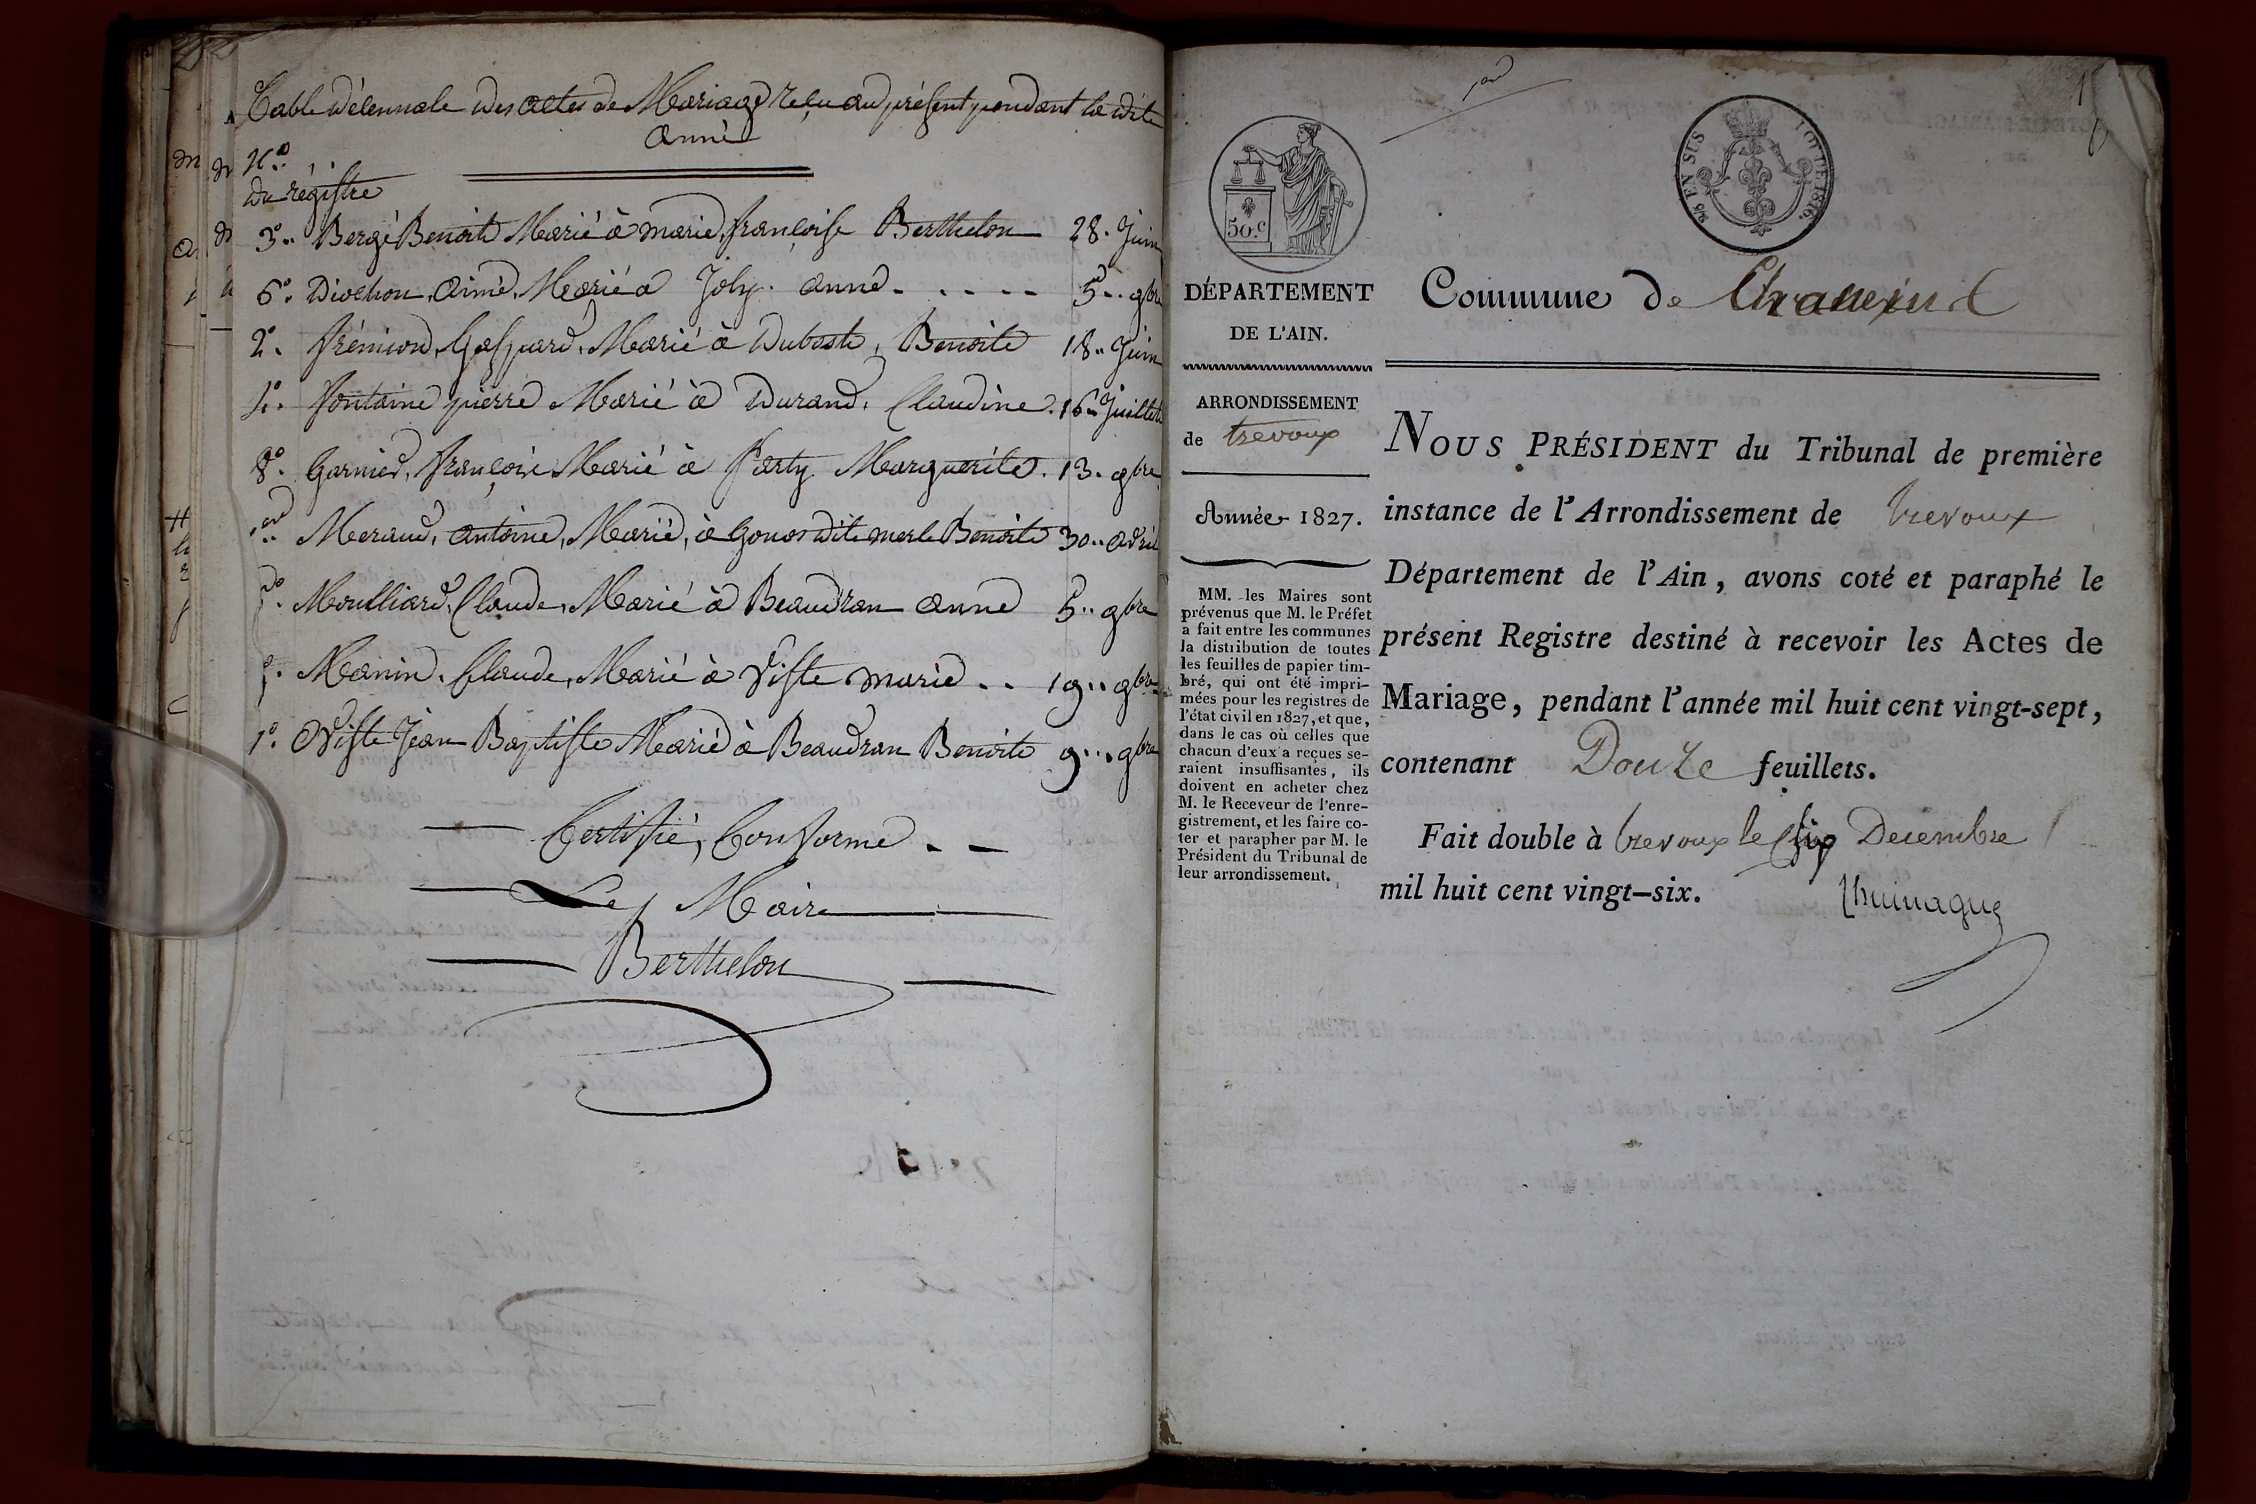 Table décennale des actes de Mariage reçu au présent pendant la dite
Année
N.º
du régistre
3º.. Bergé Benoit Marié à marie françoise Berthelon 28. Juin
6º. Diochon, Aimé, Marié a Joly. Anne - . - . - - 5.. 9bre
2º. frémion, Gaspard, Marié à Duboste, Benoite 18.. Juin
4º. fontaine pierre Marié à Durand, Claudine. 16.. Juillet
8º. Garnier, françois Marié à farty Marguerite. 13. 9bre
Meraud, antoine, Marié, à Gonos dite merle Benoite 30.. Avril
Moulliard, Claude, Marié à Beaudran anne 5.. 9bre
Manin. Claude, Marié à Viste marie .. 19.. 9bre
Viste Jean Baptiste Marié à Beaudran Benoite 9... 9bre
Certifié, Conforme . -
Le Maire
Berthelon
1
50.c
EN SUS
LOI DE 1816.
DÉPARTEMENT
DE L'AIN.
ARRONDISSEMENT
de trevoux
Année 1827.
MM. les Maires sont
prévenus que M. le Préfet
a fait entre les communes
la distribution de toutes
les feuilles de papier tim-
bré, qui ont été impri-
mées pour les registres de
l'état civil en 1827, et que,
dans le cas où celles que
chacun d'eux a reçues se-
raient insuffisantes, ils
doivent en acheter chez
M. le Receveur de l'enre-
gistrement, et les faire co-
ter et parapher par M. le
Président du Tribunal de
leur arrondissement.
Commune de
NOUS PRÉSIDENT du Tribunal de première
instance de l'Arrondissement de trevoux
Département de l'Ain, avons coté et paraphé le
présent Registre destiné à recevoir les Actes de
Mariage, pendant l'année mil huit cent vingt-sept,
contenant Douze feuillets.
Fait double à trevoux le six Decembre
mil huit cent vingt-six.